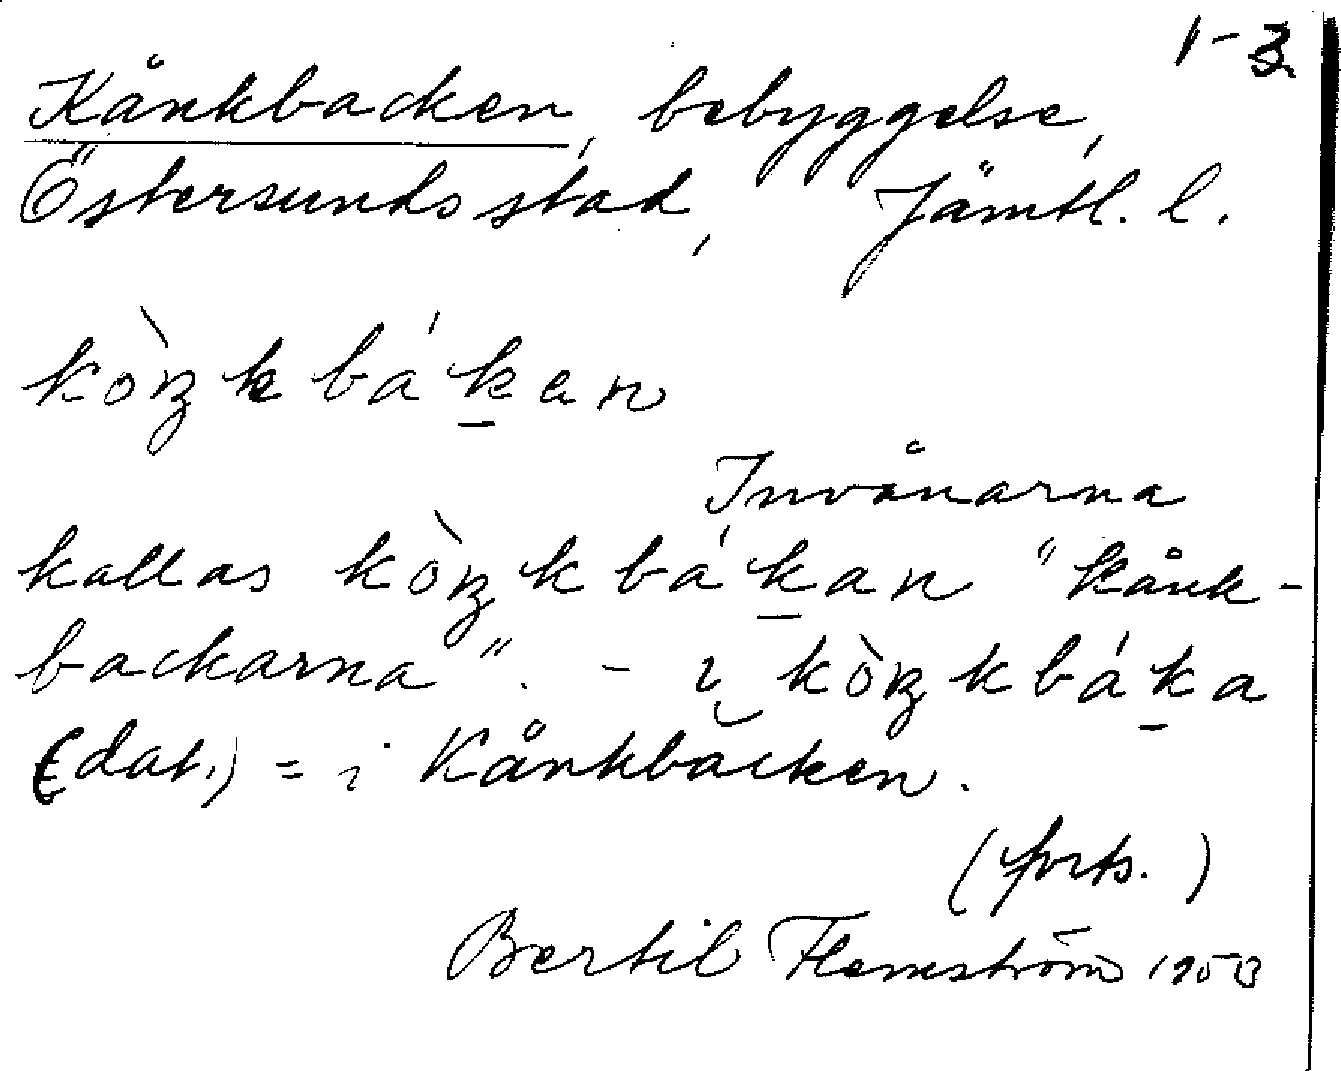 1-3
Kånkbacken, bebyggelse,
Östersunds stad, Jämtl. l.
kòŋkbák̠en
Invånarna
kallas kòŋkbák̠an "kånk-
backarna". - i kòŋkbák̠a
(dat.) = i Kånkbacken.
(forts.)
Bertil Flemström 1953